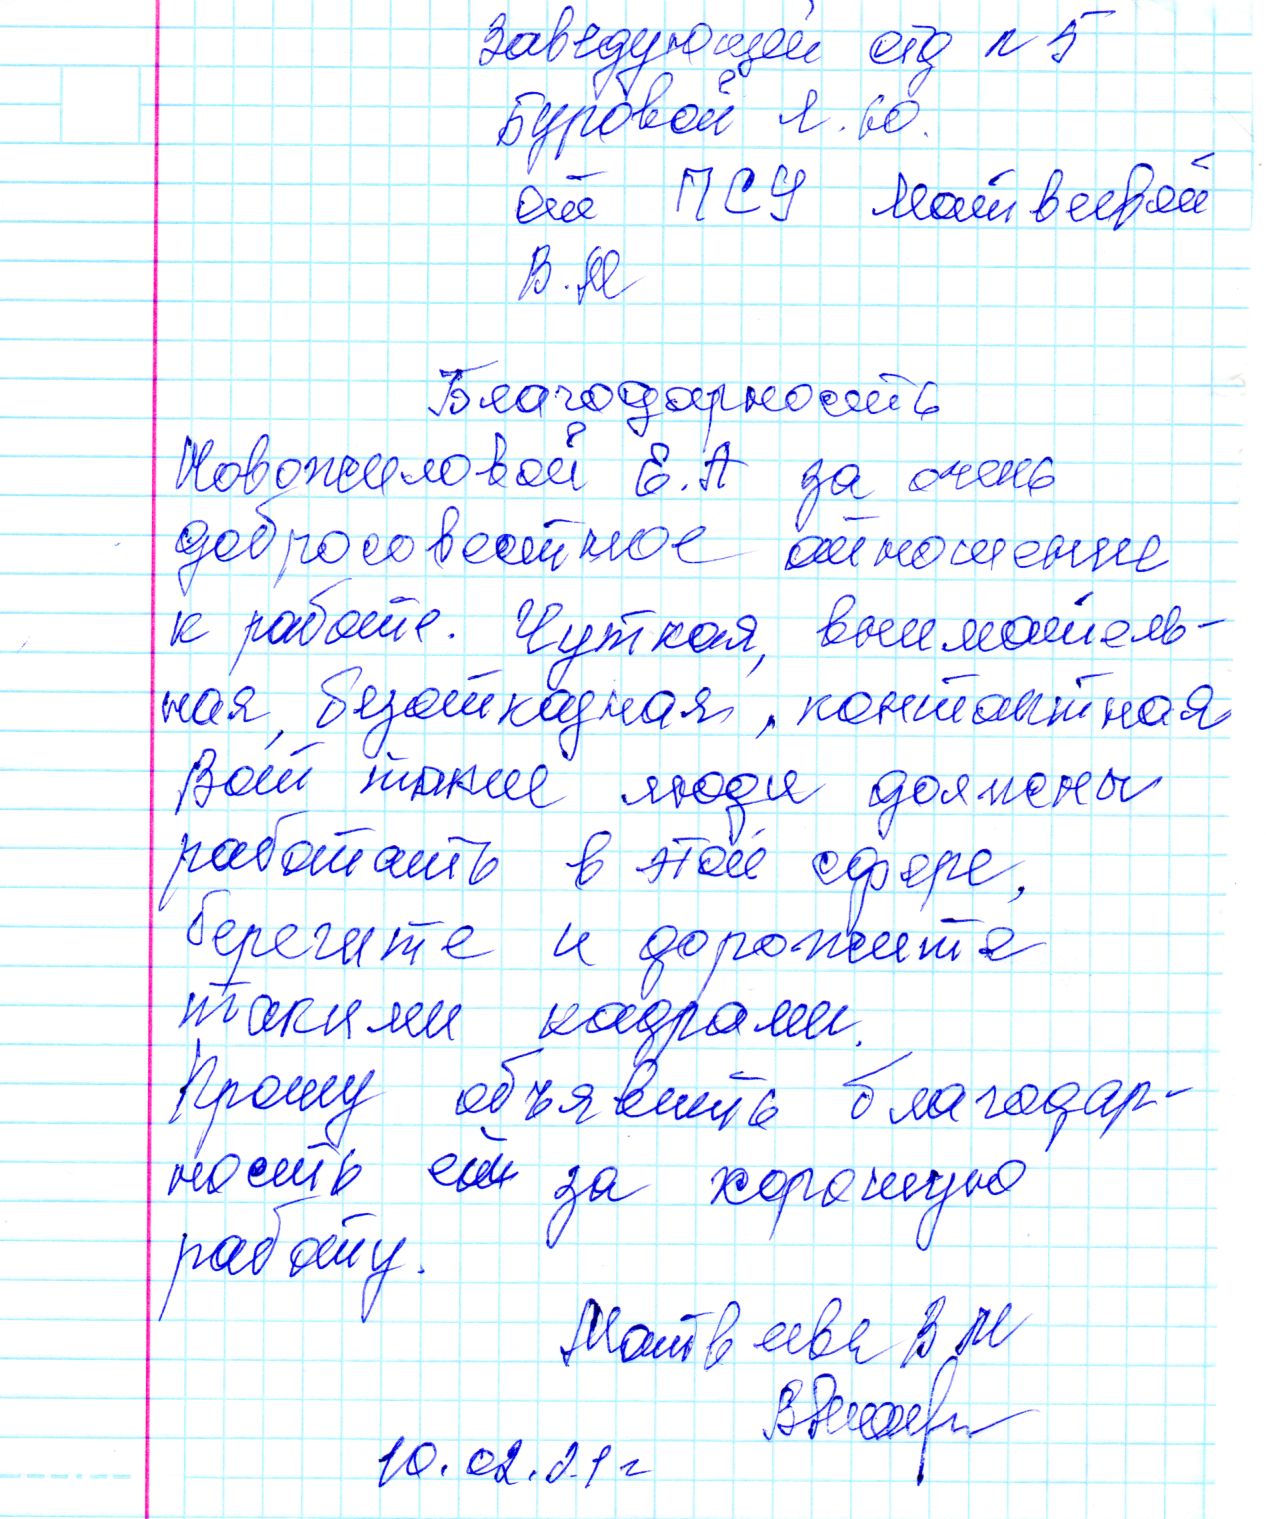 Заведующей отд N 5
Буровой Я. Ю.
от ПСУ Матвеевой
В. М
Благодарность
Новожиловой Е. А за очень
добросовестное отношение
к работе. Чуткая, вниматель-
ная, безотказная, контактная
Вот такие люди должны
работать в этой сфере,
берегите и дорожите
такими кадрами.
Прошу объявить благодар-
ность ей за хорошую
работу.
Матвеева В М
10.02.21 г